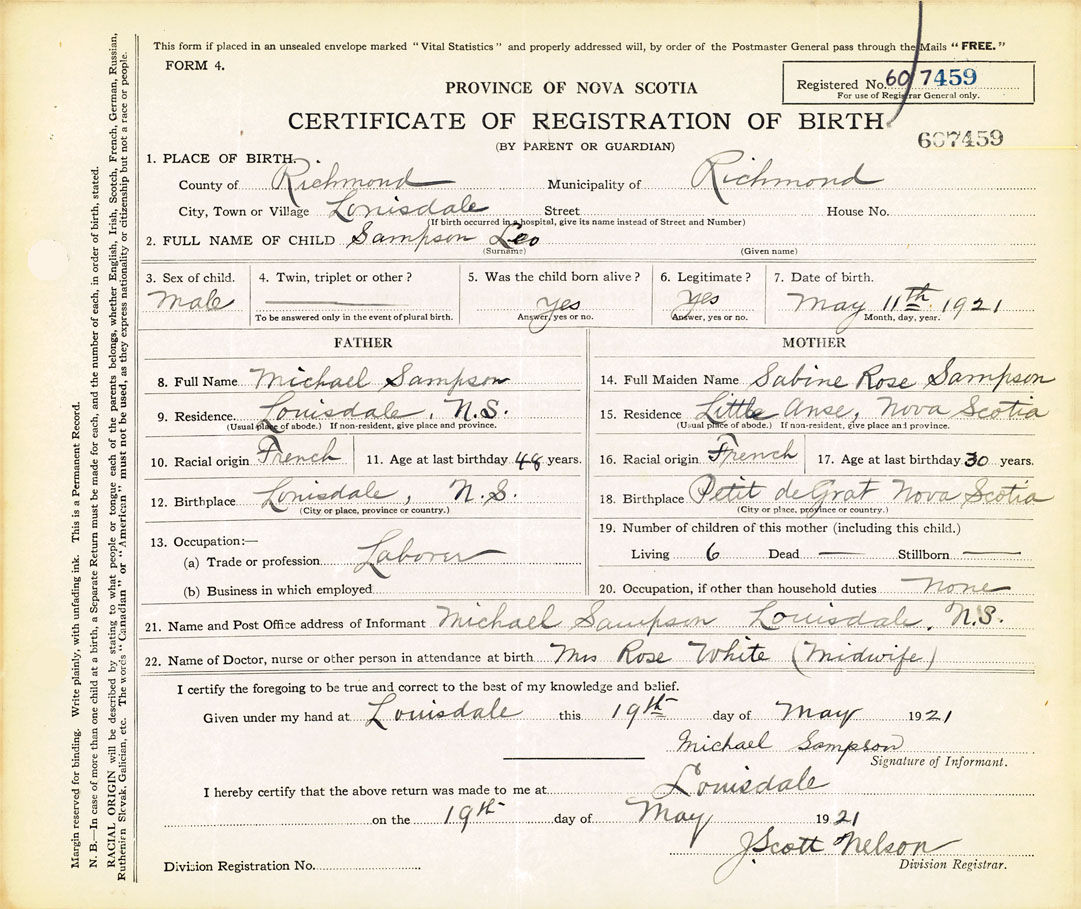 This form if placed in an unsealed envelope marked "Vital Statistics" and properly addressed will, by order of the Postmaster General pass through the Mails "FREE."
FORM 4.
Registered No. 607459
For use of Registrar General only.
PROVINCE OF NOVA SCOTIA
CERTIFICATE OF REGISTRATION OF BIRTH
607459
(BY PARENT OR GUARDIAN)
1. PLACE OF BIRTH.
County of Richmond Municipality of Richmond
City, Town or Village Louisdale Street House No.
(If birth occurred in a hospital, give its name instead of Street and Number)
2. FULL NAME OF CHILD Sampson Leo
(Surname) (Given name)
3. Sex of child. 4. Twin, triplet or other? 5. Was the child born alive? 6. Legitimate? 7. Date of birth.
Male yes yes May 11th 1921
To be answered only in the event of plural birth. Answer, yes or no. Answer, yes or no. Month, day, year.
FATHER
8. Full Name Michael Sampson
9. Residence. Louisdale, N.S.
(Usual place of abode.) If non-resident, give place and province.
10. Racial origin French 11. Age at last birthday 48 years.
12. Birthplace Louisdale, N.S.
(City or place, province or country.)
13. Occupation:—
(a) Trade or profession Laborer
(b) Business in which employed
MOTHER
14. Full Maiden Name Sabine Rose Sampson
15. Residence Little Anse, Nova Scotia
(Usual place of abode.) If non-resident, give place and province.
16. Racial origin French 17. Age at last birthday 30 years.
18. Birthplace Petit de Grat Nova Scotia
(City or place, province or country.)
19. Number of children of this mother (including this child.)
Living 6 Dead — Stillborn —
20. Occupation, if other than household duties none
21. Name and Post Office address of Informant Michael Sampson Louisdale, N.S.
22. Name of Doctor, nurse or other person in attendance at birth Mrs Rose White (Midwife)
I certify the foregoing to be true and correct to the best of my knowledge and belief.
Given under my hand at Louisdale this 19th day of May 1921
Michael Sampson
Signature of Informant.
I hereby certify that the above return was made to me at Louisdale
on the 19th day of May 1921
J. Scott Nelson
Division Registration No. Division Registrar.
Margin reserved for binding. Write plainly, with unfading ink. This is a Permanent Record.
N. B.—In case of more than one child at a birth, a Separate Return must be made for each, and the number of each, in order of birth, stated.
RACIAL ORIGIN will be described by stating to what people or tongue each of the parents belongs, whether English, Irish, Scotch, French, German, Russian,
Ruthenian Slovak, Galician, etc. The words "Canadian" or "American" must not be used, as they express nationality or citizenship but not a race or people.